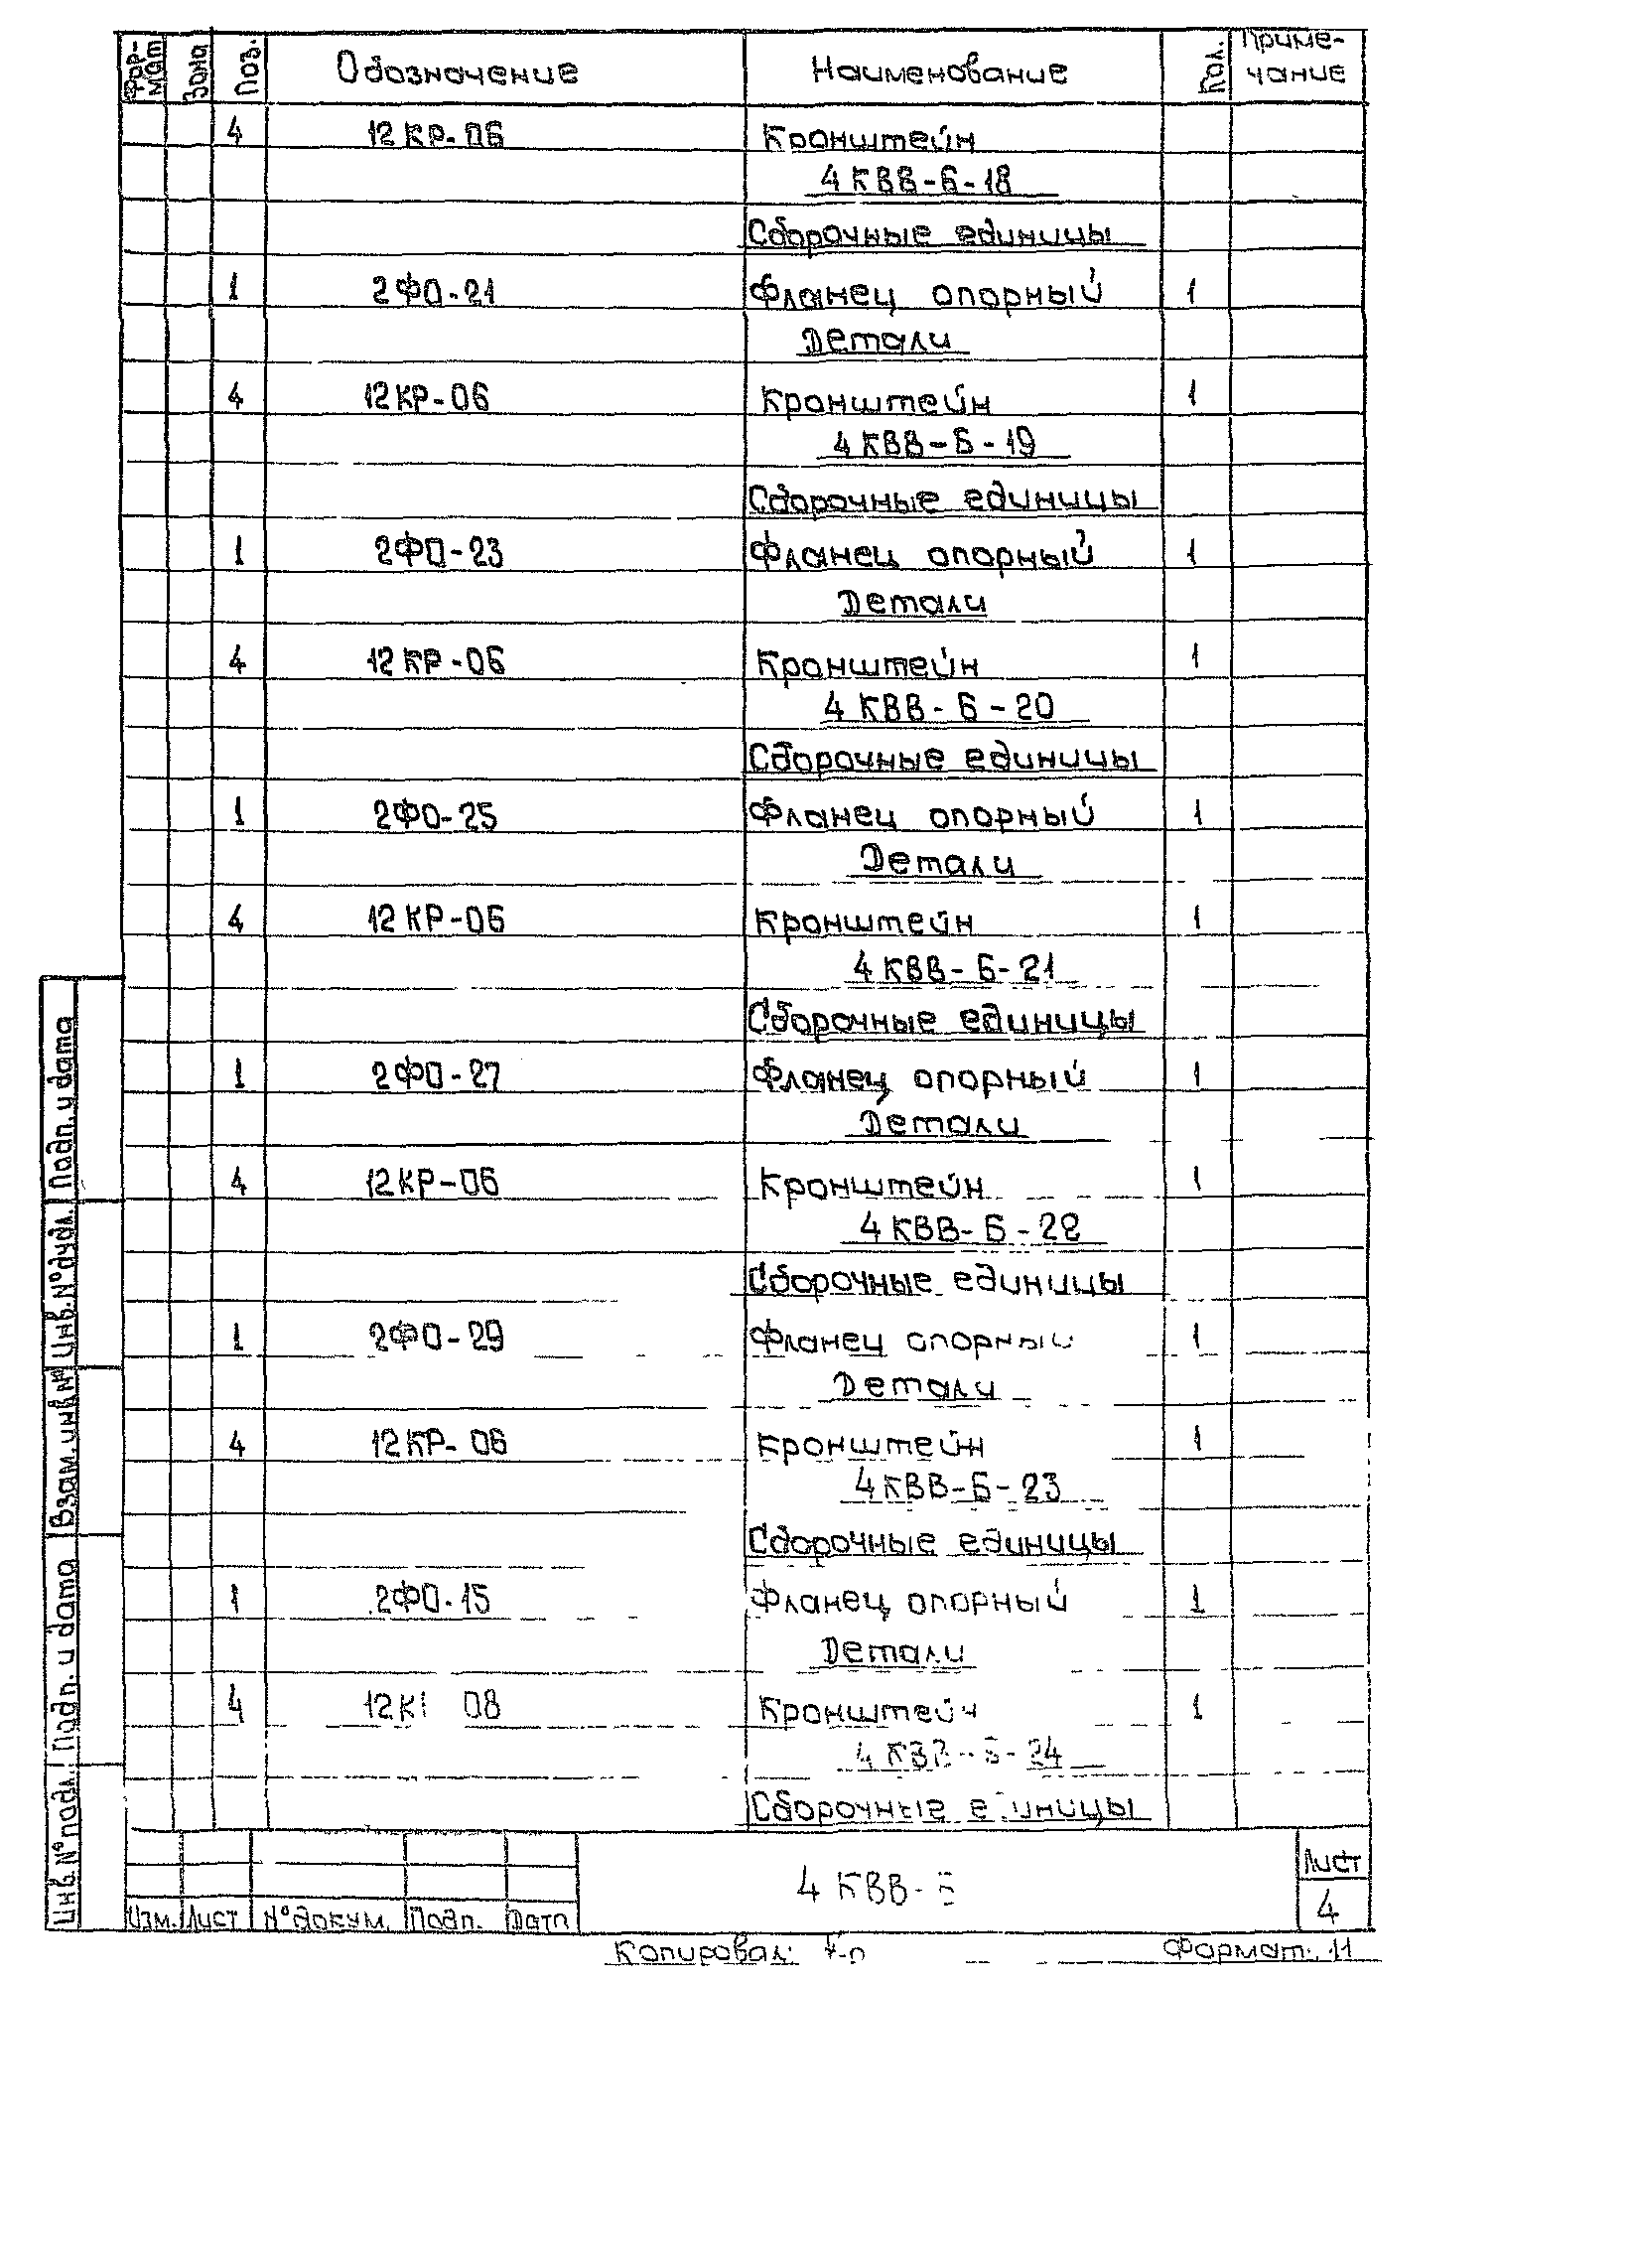 Фор-мат Зона Поз. Обозначение Наименование Кол. Приме-чание
4 12КР-06 Кронштейн
4КВВ-Б-18
Сборочные единицы
1 2ФО-21 Фланец опорный 1
Детали
4 12КР-06 Кронштейн 1
4КВВ-Б-19
Сборочные единицы
1 2ФО-23 Фланец опорный 1
Детали
4 12КР-06 Кронштейн 1
4КВВ-Б-20
Сборочные единицы
1 2ФО-25 Фланец опорный 1
Детали
4 12КР-06 Кронштейн 1
4КВВ-Б-21
Сборочные единицы
1 2ФО-27 Фланец опорный 1
Детали
4 12КР-06 Кронштейн 1
4КВВ-Б-22
Сборочные единицы
1 2ФО-29 Фланец опорный 1
Детали
4 12КР-06 Кронштейн 1
4КВВ-Б-23
Сборочные единицы
1 2ФО-15 Фланец опорный 1
Детали
4 12КР-08 Кронштейн 1
4КВВ-Б-24
Сборочные единицы
Подп. и дата
Инв. № дубл.
Взам. инв. №
Подп. и дата
Инв. № подл.
Изм. Лист № докум. Подп. Дата
4КВВ-Б
Лист
4
Копировал: Формат: 11